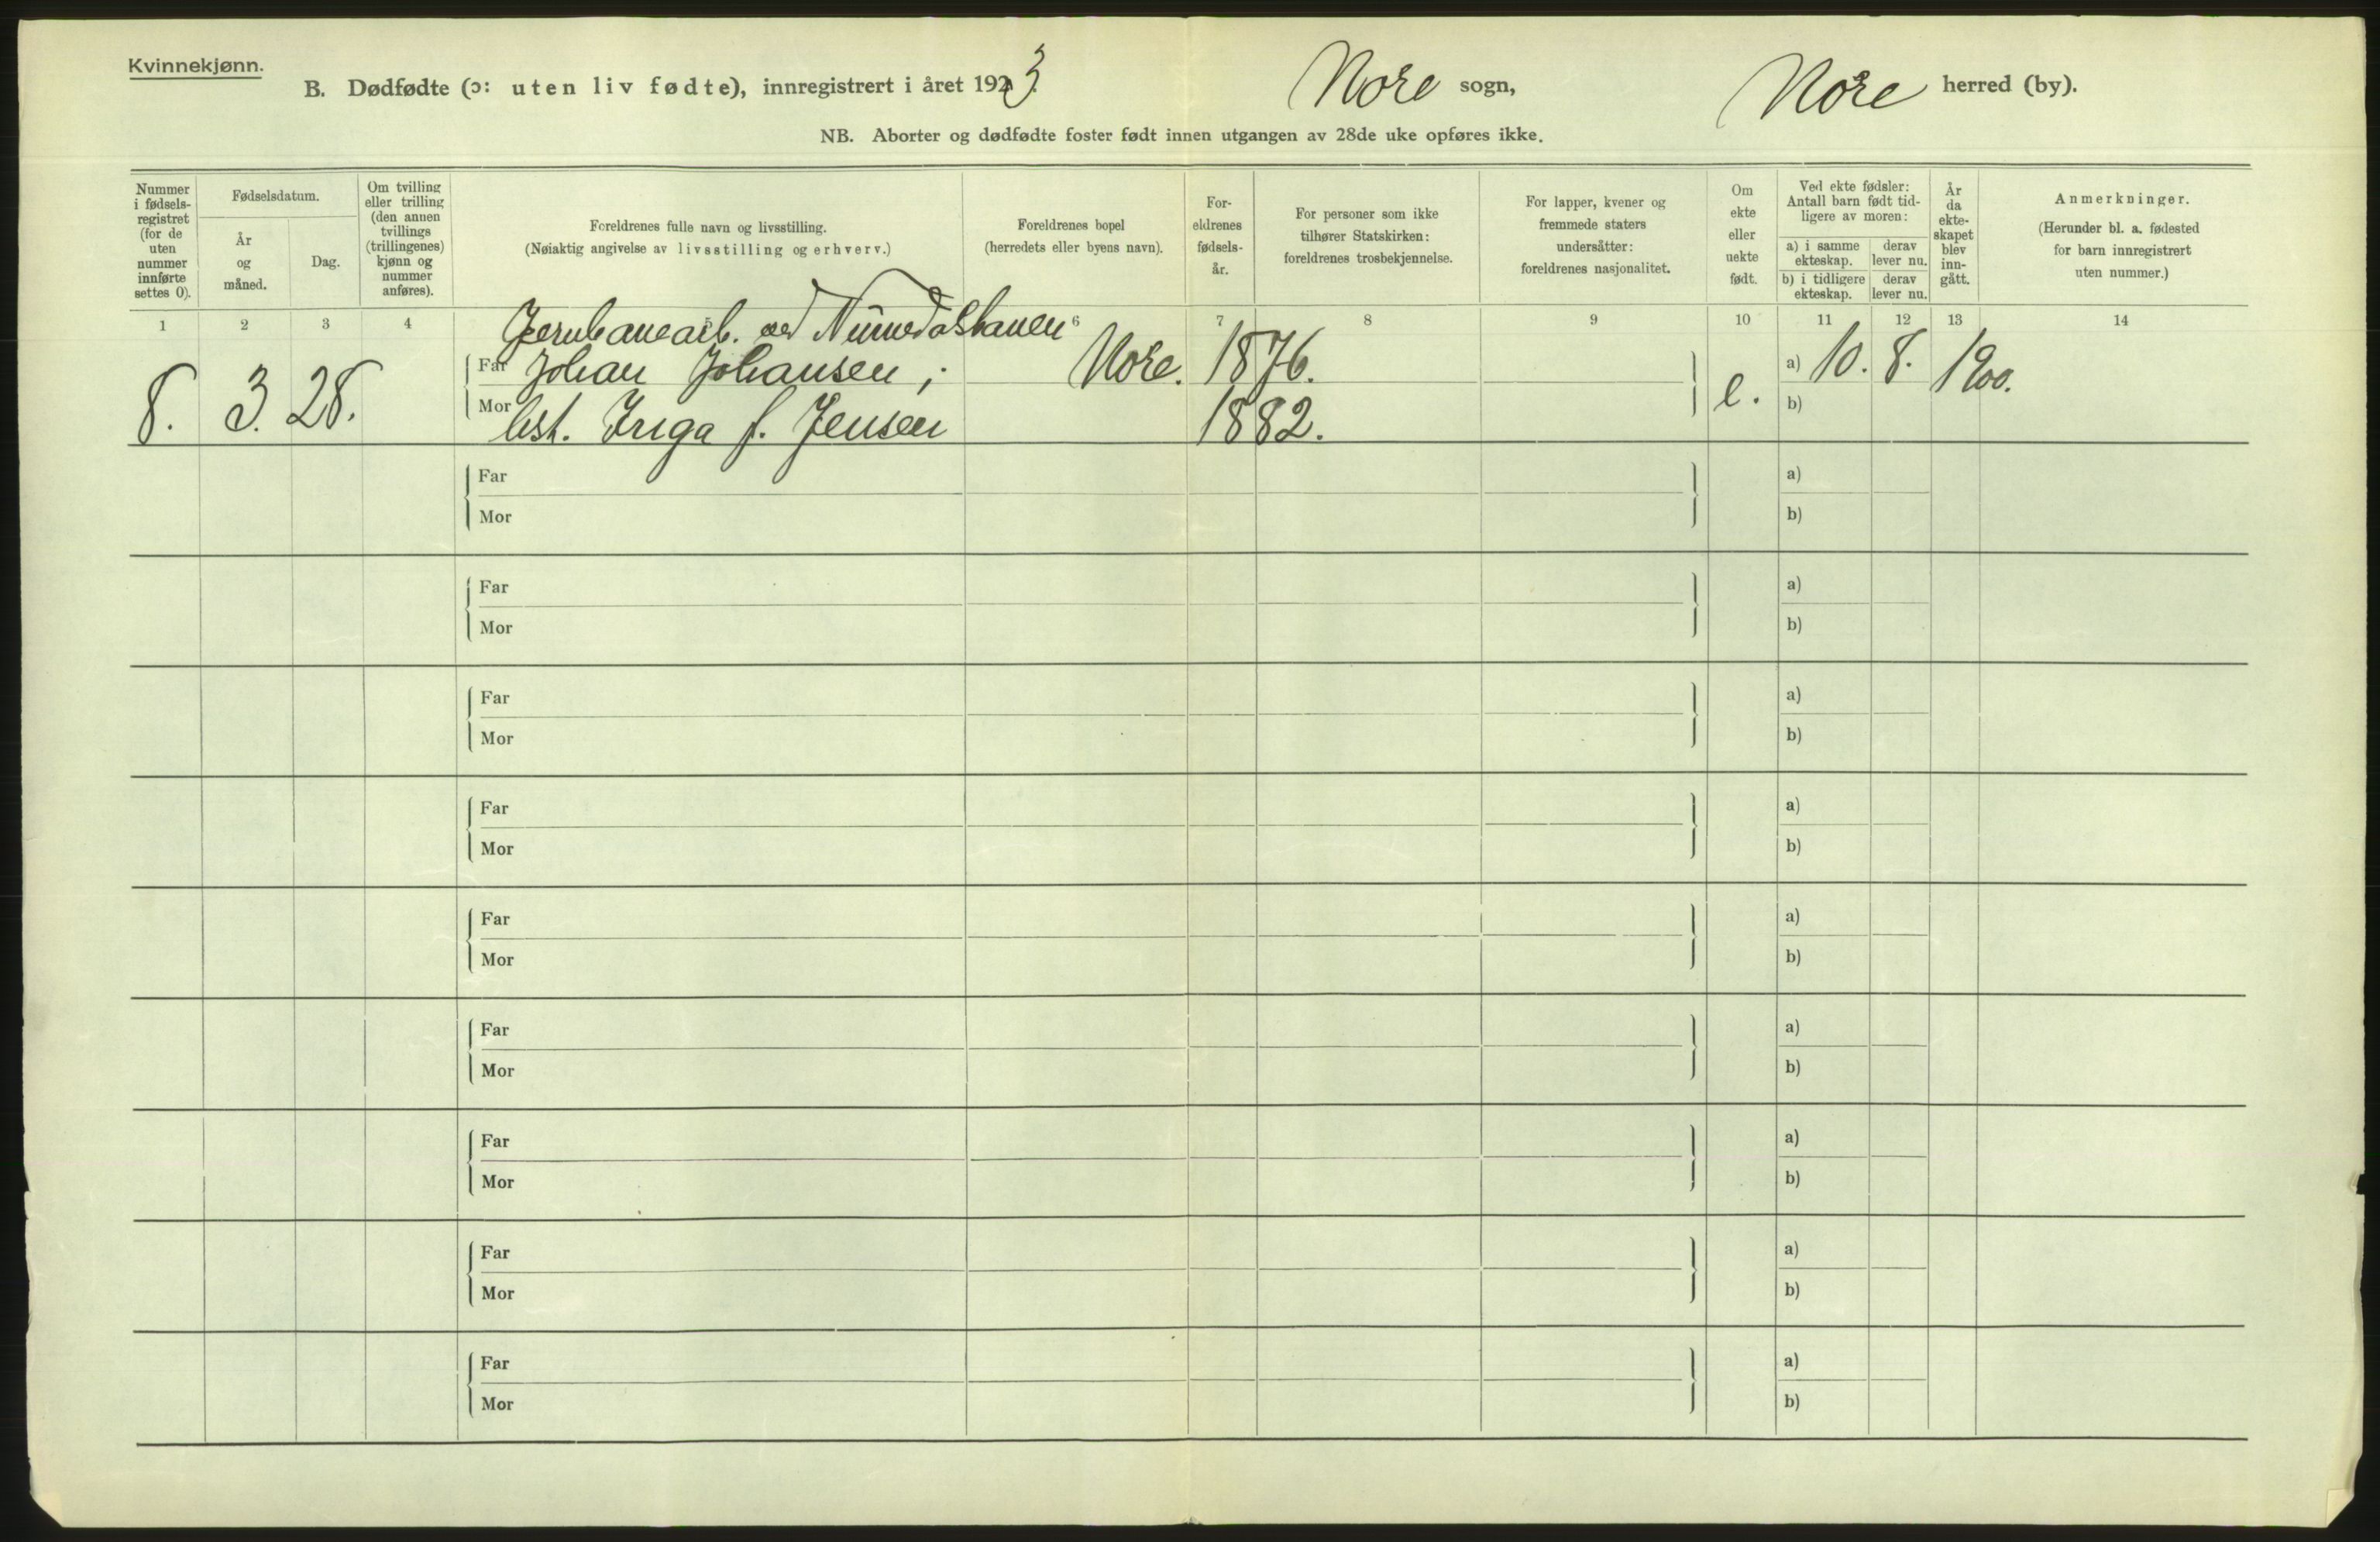 Kvinnekjønn.
B. Dødfødte (ɔ: uten liv fødte), innregistrert i året 1923. Nore sogn, Nore herred (by).
NB. Aborter og dødfødte foster født innen utgangen av 28de uke opføres ikke.
Nummer i fødsels-registret (for de uten nummer innførte settes 0).
Fødselsdatum.
År og måned.
Dag.
Om tvilling eller trilling (den annen tvillings (trillingenes) kjønn og nummer anføres).
Foreldrenes fulle navn og livsstilling.
(Nøiaktig angivelse av livsstilling og erhverv.)
Foreldrenes bopel
(herredets eller byens navn).
For-eldrenes fødsels-år.
For personer som ikke tilhører Statskirken: foreldrenes trosbekjennelse.
For lapper, kvener og fremmede staters undersåtter: foreldrenes nasjonalitet.
Om ekte eller uekte født.
Ved ekte fødsler: Antall barn født tid-ligere av moren:
a) i samme ekteskap.
derav lever nu.
b) i tidligere ekteskap.
derav lever nu.
År da ekte-skapet blev inn-gått.
Anmerkninger.
(Herunder bl. a. fødested for barn innregistrert uten nummer.)
1 2 3 4 5 6 7 8 9 10 11 12 13 14
Jernbanearb. ved Numedalsbanen
8. 3. 28. Far Johan Johansen; Nore. 1876. e. a) 10. 8. 1900.
Mor hst. f. Jensen 1882. b)
Far a)
Mor b)
Far a)
Mor b)
Far a)
Mor b)
Far a)
Mor b)
Far a)
Mor b)
Far a)
Mor b)
Far a)
Mor b)
Far a)
Mor b)
Far a)
Mor b)